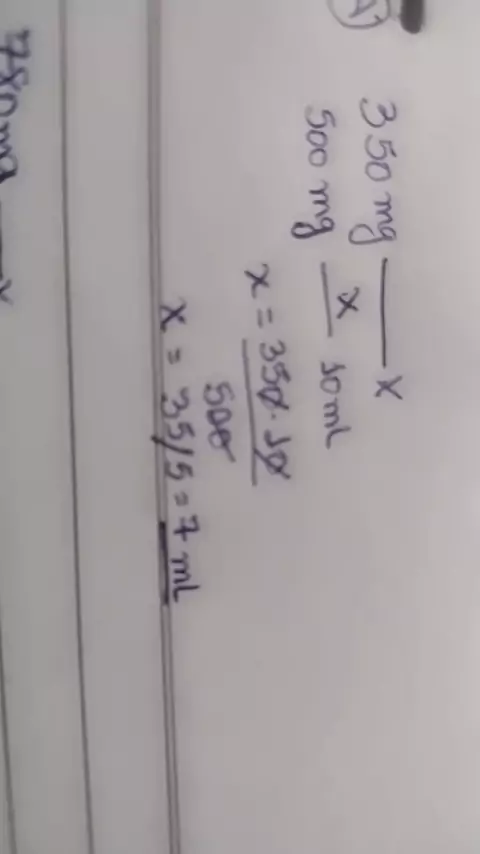 A)
350 mg — x
500 mg — 10 ml
x
x = 350 . 10
500
x = 35/5 = 7 ml
780 mg — x